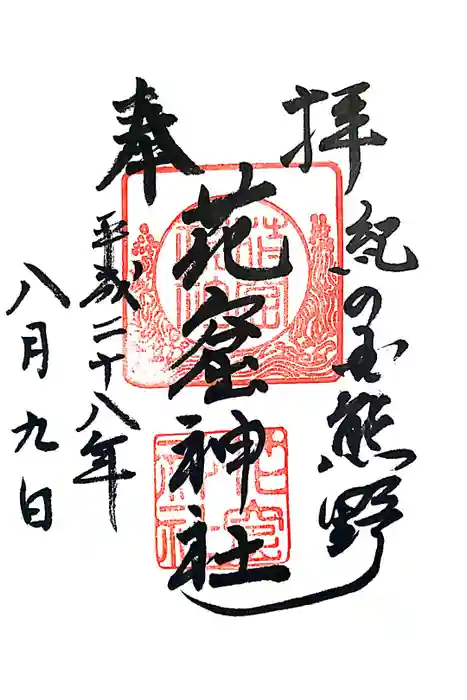 奉拝
紀の国熊野
花窟神社
平成二十八年
八月九日
花窟
神社